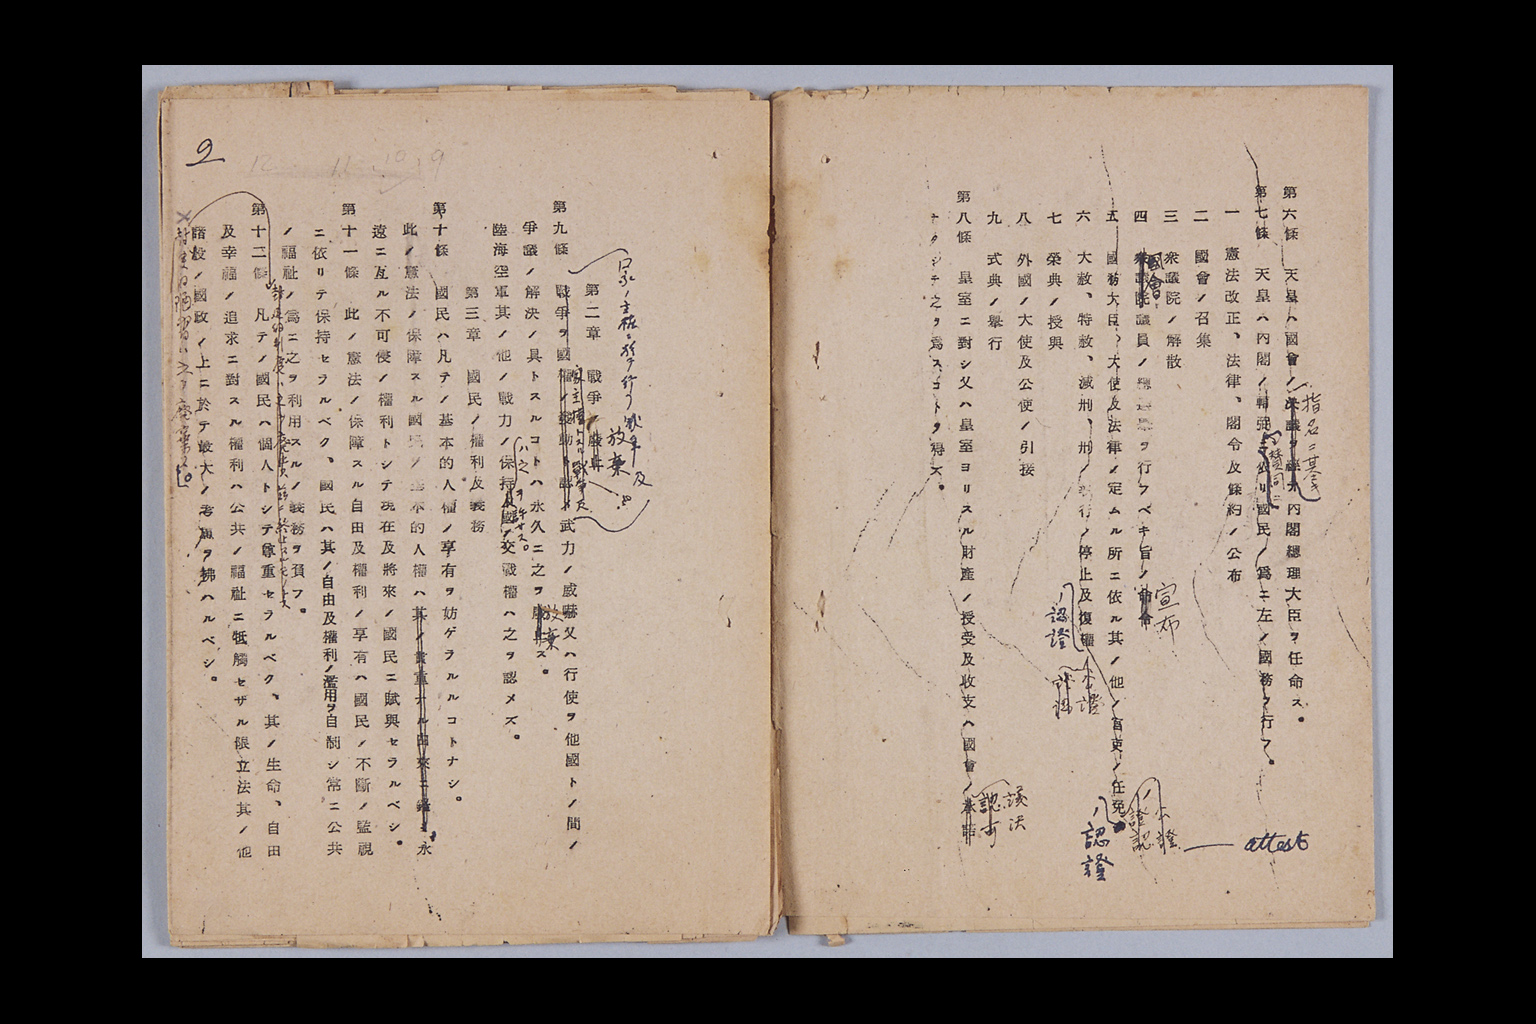 第六條　天皇ハ國會ノ決議ヲ經テ內閣總理大臣ヲ任命ス。
指名ニ基キ
第七條　天皇ハ內閣ノ輔弼ニ依リ國民ノ爲ニ左ノ國務ヲ行フ。
一　憲法改正、法律、閣令及條約ノ公布
二　國會ノ召集
三　衆議院ノ解散
四　衆議院議員ノ ヲ行フベキ旨ノ命令
國會
宣布
五　國務大臣、大使及法律ノ定ムル所ニ依ル其ノ他ノ官吏ノ任免
ノ公證
證認
attest
ノ認證
六　大赦、特赦、減刑、刑ノ執行ノ停止及復權
ノ公證
ノ認證
七　榮典ノ授與
八　外國ノ大使及公使ノ引接
九　式典ノ擧行
第八條　皇室ニ對シ又ハ皇室ヨリスル財產ノ授受及收支ハ國會ノ承諾
議決
認可
ナクシテ之ヲ爲スコトヲ得ズ。
9
12 11 10 9
第二章　戰爭ノ廢棄
放棄
國家ノ主權ニ於テ行フ戰爭及
第九條　戰爭ヲ國權ノ發動ト認メ武力ノ威嚇又ハ行使ヲ他國トノ間ノ
爭議ノ解決ノ具トスルコトハ永久ニ之ヲ廢止ス。
放棄
陸海空軍其ノ他ノ戰力ノ保持及國ノ交戰權ハ之ヲ認メズ。
ハ之ヲ許サズ。
第三章　國民ノ權利及義務
第十條　國民ハ凡テノ基本的人權ノ享有ヲ妨ゲラルルコトナシ。
此ノ憲法ノ保障スル國民ノ基本的人權ハ其ノ貴重ナル由來ニ鑑ミ、永
遠ニ亙ル不可侵ノ權利トシテ現在及將來ノ國民ニ賦與セラルベシ。
第十一條　此ノ憲法ノ保障スル自由及權利ノ享有ハ國民ノ不斷ノ監視
ニ依リテ保持セラルベク、國民ハ其ノ自由及權利ノ濫用ヲ自制シ常ニ公共
ノ福祉ノ爲ニ之ヲ利用スルノ義務ヲ負フ。
第十二條　凡テノ國民ハ個人トシテ尊重セラルベク、其ノ生命、自由
及幸福ノ追求ニ對スル權利ハ公共ノ福祉ニ牴觸セザル限立法其ノ他
諸般ノ國政ノ上ニ於テ最大ノ考慮ヲ拂ハルベシ。